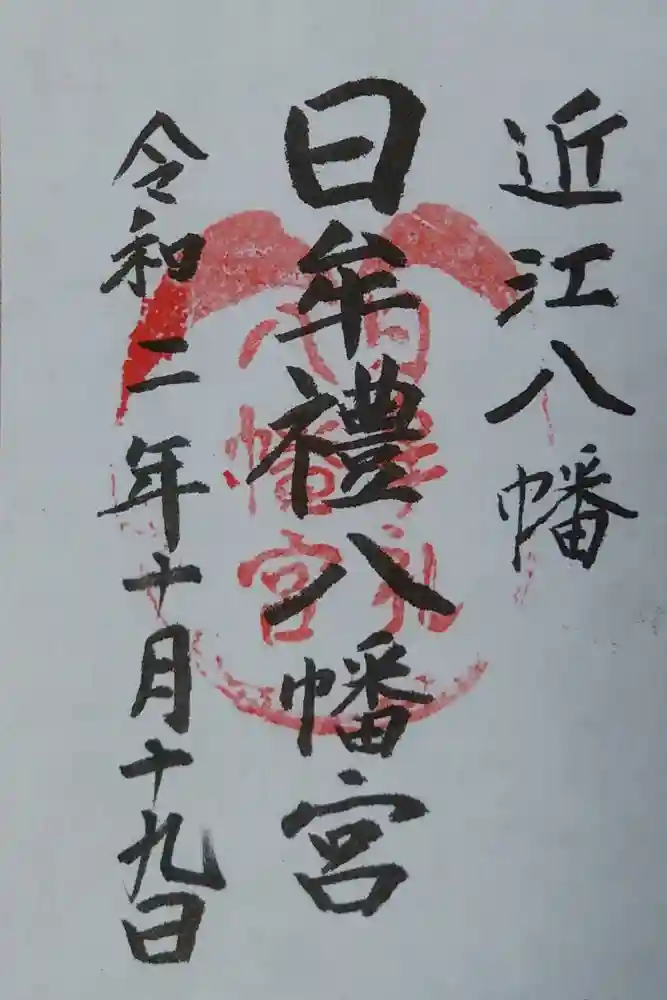 近江八幡
日牟禮八幡宮
日牟礼
八幡宮
令和二年十月十九日